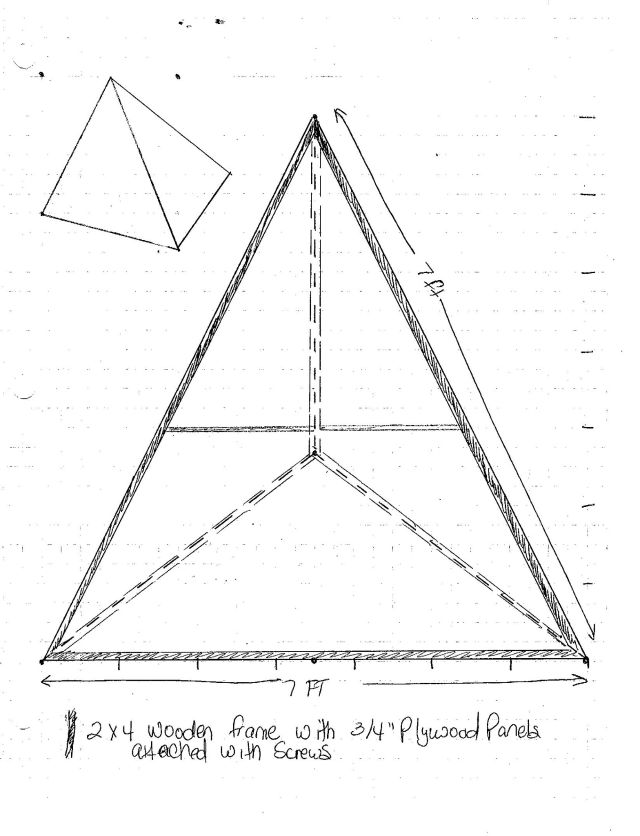 7ft
7 FT
2x4 wooden frame with 3/4" Plywood Panels
attached with Screws